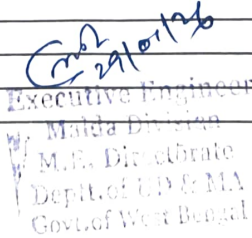 29/01/26
Executive Engineer
Malda Division
M.E. Directorate
Deptt.of UD & MA
Govt.of West Bengal